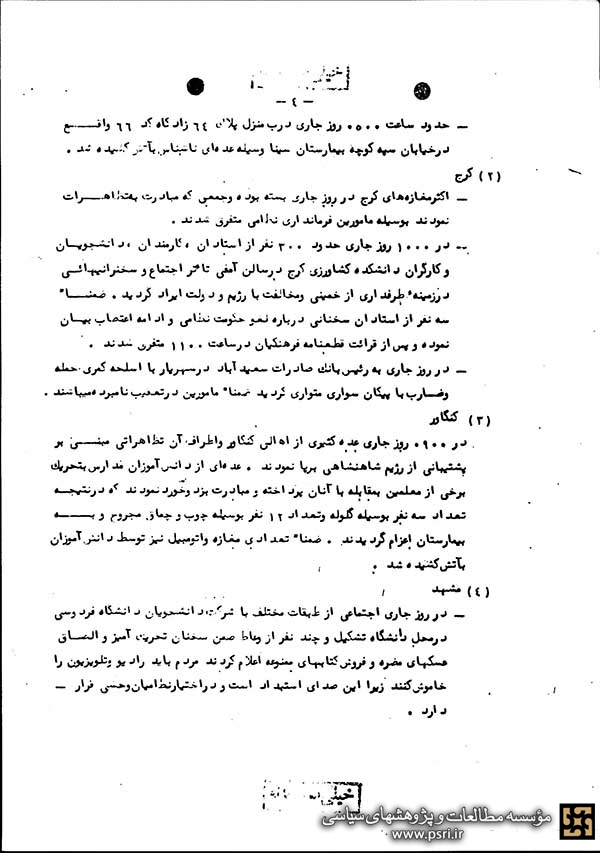 - ٤ -
– حدود ساعت ۰۵۰۰ روز جاری درب منزل پلاک ٦٤ زادگاه کد ٦٦ واقـــع
درخیابان سپه کوچه بیمارستان سینا وسیله عده‌ای ناشناس بآتش کشیده شد .
(۲) کرج
– اکثرمغازه‌های کرج در روز جاری بسته بوده وجمعی که مبادرت به‌تظاهـــرات
نمودند بوسیله مامورین فرمانداری نظامی متفرق شدند .
– در ۱۰۰۰ روز جاری حدود ۳۰۰ نفر از استادان ، کارمندان ، دانشجویــان
و کارگران دانشکده کشاورزی کرج درسالن آمفی تاتر اجتماع و سخنرانیهائــی
درزمینه طرفداری از خمینی ومخالفت با رژیم و دولت ایراد گردید . ضمنــا"
سه نفر از استادان سخنانی درباره لغو حکومت نظامی و ادامه اعتصاب بیـان
نموده و پس از قرائت قطعنامه فرهنگیان درساعت ۱۱۰۰ متفرق شدند .
– در روز جاری به رئیس بانک صادرات سعیدآباد درشهریار با اسلحه کمری حمله
وضارب با پیکان سواری متواری گردید ضمنا" مامورین درتعقیب نامبرده میباشند .
(۳) کنگاور
در ۰۹۰۰ روز جاری عده کثیری از اهالی کنگاور واطراف آن تظاهراتی مبنــی بر
پشتیبانی از رژیم شاهنشاهی برپا نمودند . عده‌ای از دانش‌آموزان مدارس بتحریک
برخی از معلمین بمقابله با آنان پرداخته و مبادرت بزد وخورد نمودند که درنتیجــه
تعداد سه نفر بوسیله گلوله وتعداد ۱۲ نفر بوسیله چوب و چماق مجروح و بـــه
بیمارستان اعزام گردیدند . ضمنا" تعدادی مغازه واتومبیل نیز توسط دانش‌آموزان
بآتش کشیده شد .
(٤) مشهد
– در روز جاری اجتماعی از طبقات مختلف با شرکت دانشجویان دانشگاه فردوسی
درمحل دانشگاه تشکیل و چند نفر از وعاظ ضمن سخنان تحریک آمیز و الصــاق
عکسهای مضره و فروش کتابهای ممنوعه اعلام کردند مردم باید رادیو وتلویزیون را
خاموش کنند زیرا این صدای استبداد است و دراختیارنظامیان وحشی قرار –
دارد .
مؤسسه مطالعات و پژوهشهای سیاسی
www.psri.ir